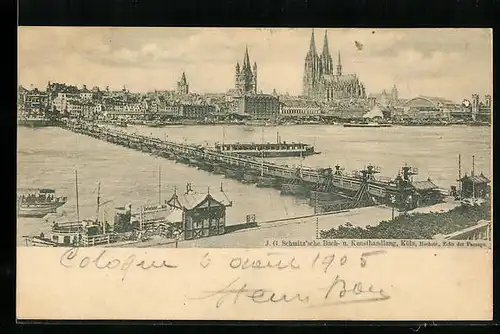 J. G. Schmitz'sche Buch- u. Kunsthandlung, Köln, Hochstr., Ecke der Passage.
Cologne 6 août 1905
Henri